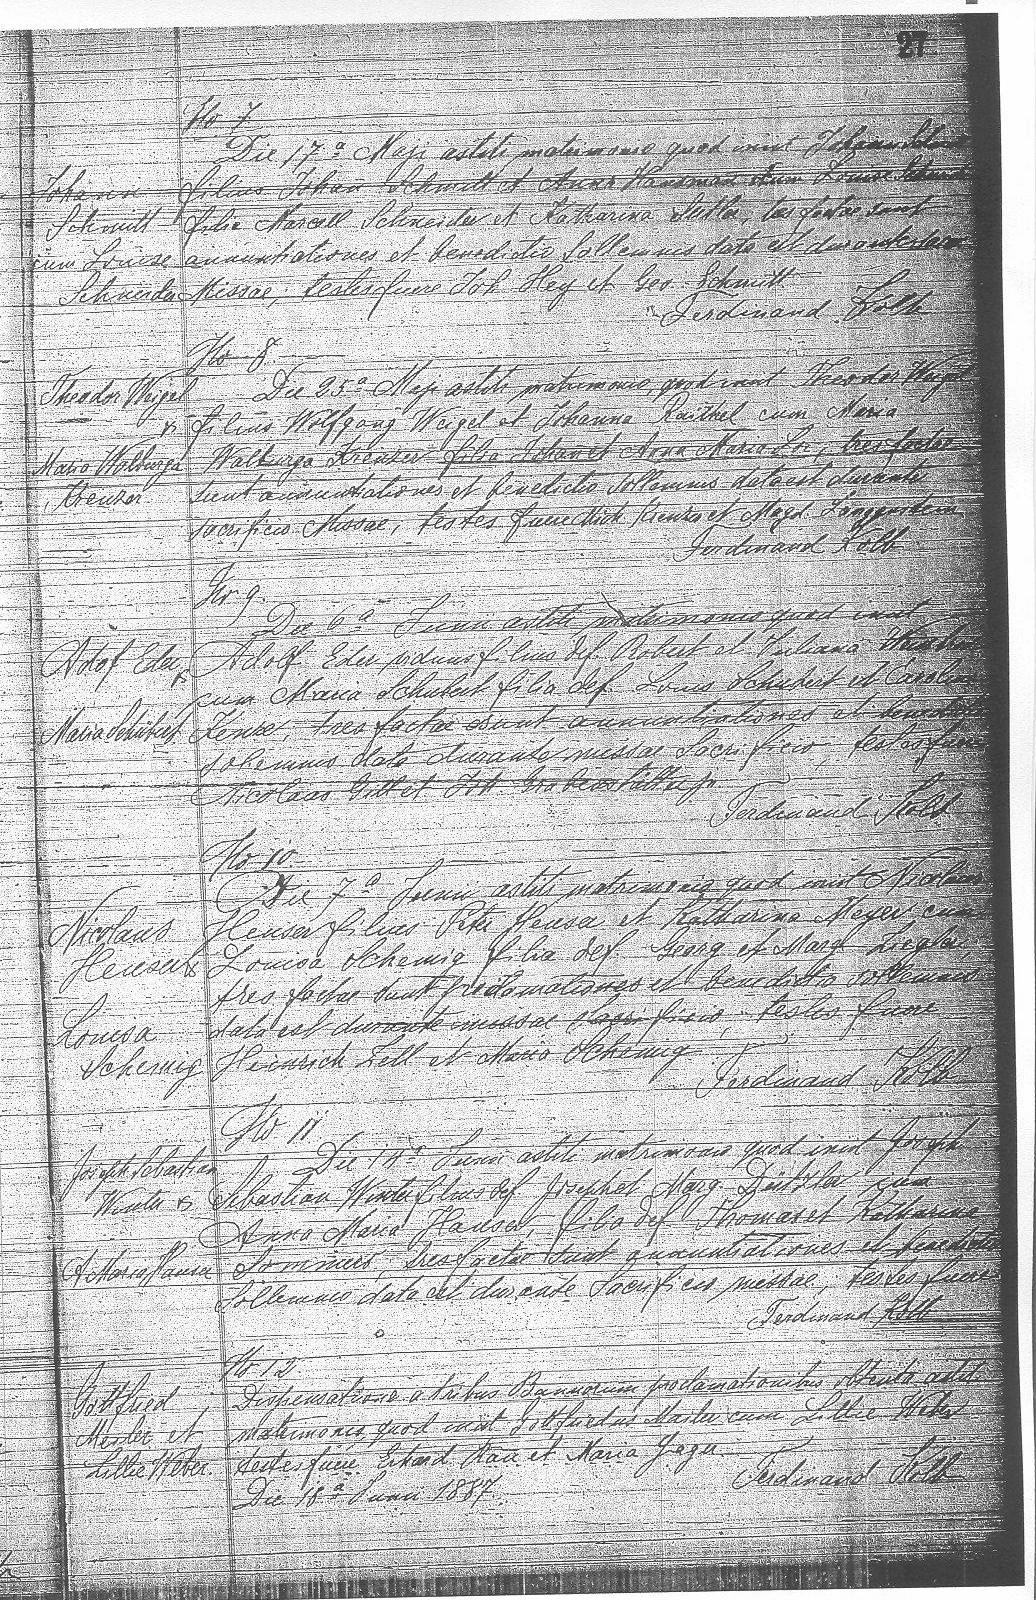 27
No 7
Die 17a Maji astiti matrimonio quod iniit Johann Schmitt
Johann filius Johan Schmitt et Anna cum Louise
Schmitt filia Marcell Schneider et Katharina tres factae sunt
cum Louise annuntiationes et benedictio sollemnis data est durante
Schneider Missae, testes fuere Joh Hey et Geo. Schmitt
Ferdinand Kolb
No 8.
Theodor Weigel Die 25a Maji astiti matrimonio, quod iniit Theodor Weigel
& filius Wolfgang Weigel et Johanna Raithel cum Maria
Maria Walburga Walburga Kreuzer filia Johan et Anna Maria Loi, tres factae
Kreuzer sunt annuntiationes et benedictio sollemnis data est durante
sacrificio Missae, testes fuere Mich Kreuzer et Magd.
Ferdinand Kolb
No 9.
Die 6a Junii astiti matrimonio quod iniit
Adolf Eder & Adolf Eder viduus filius def. Robert et Juliana
cum Maria Schubert filia def. Louis Schubert et Carolina
Maria Schubert tres factae sunt annuntiationes et benedictio
solemnis data durante missae sacrificio, testes fuere
Nicolaus Gitt et Joh.
Ferdinand Kolb
No 10.
Die 7a Junii astiti matrimonio quod iniit Nicolaus
Nicolaus Heuser filius Peter Heuser et Katharina Meyer cum
Heuser & Louisa Schemig filia def. Georg et Marg. Ziegler
tres factae sunt proclamationes et benedictio sollemnis
Louisa data est durante missae sacrificio, testes fuere
Schemig Heinrich Zell et Maria Schemig
Ferdinand Kolb
No 11
Joseph Sebastian Die 14a Junii astiti matrimonio quod iniit Joseph
Winter & Sebastian Winter filius def. Joseph et Marg. cum
Anna Maria Hauser, filia def. Thomas et Katharina
A. Maria Hauser Sommer tres factae sunt annuntiationes et benedictio
sollemnis data est durante sacrificio missae, testes fuere
Ferdinand Kolb
No 12.
Gottfried Dispensatione a tribus Bannorum proclamationibus obtenta astiti
Mesler et matrimonio quod iniit Gottfriedus Mesler cum Lillie Weber
Lillie Weber. testes fuere Erhard Rau et Maria Jager
Die 18a Junii 1887. Ferdinand Kolb